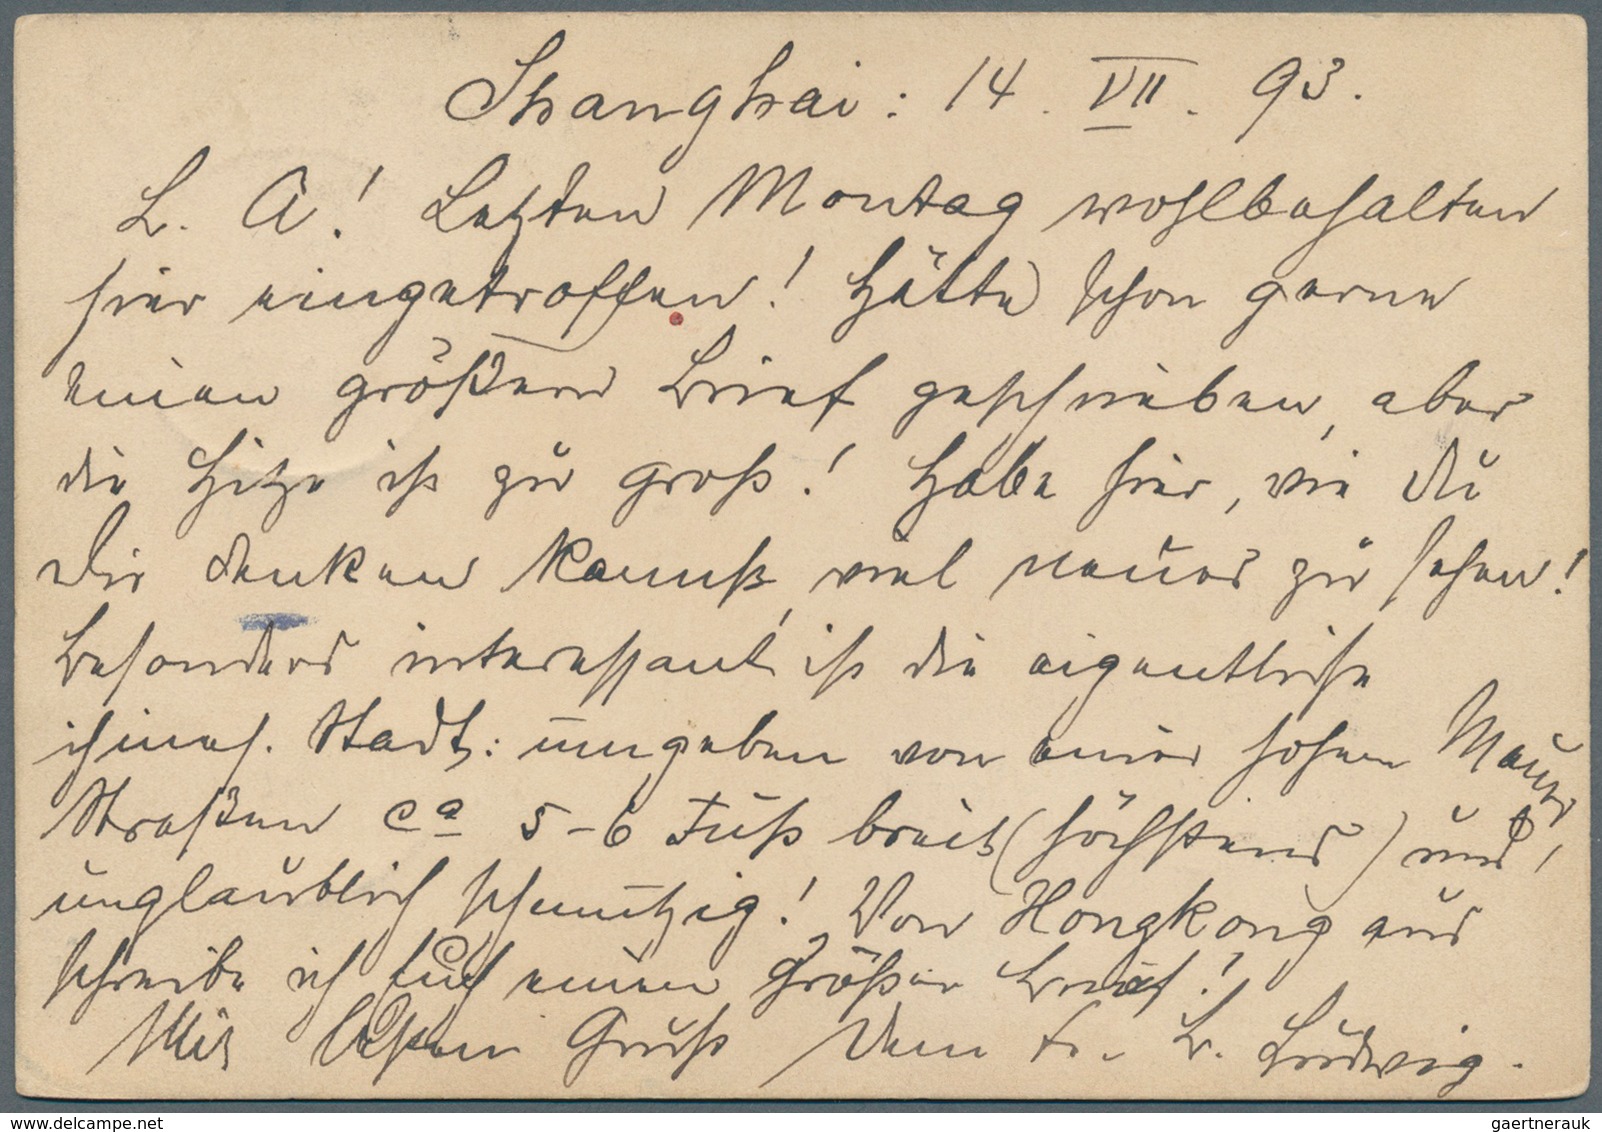 Shanghai: 14. VII. 93.
L. A! Letzten Montag wohlbehalten
hier eingetroffen! Hätte schon gerne
einen größern Brief geschrieben, aber
die Hitze ist zu groß! Habe hier, wie Du
Dir denken kannst, viel neues zu sehen!
Besonders interessant ist die eigentliche
chines. Stadt: umgeben von einer hohen Mauer,
Straßen ca 5-6 Fuß breit (höchstens) und
unglaublich schmutzig! Von Hongkong aus
schreibe ich Euch einen größern Brief!
Mit Gruß Dein Fr. L. Ludwig.
gaertnerauk